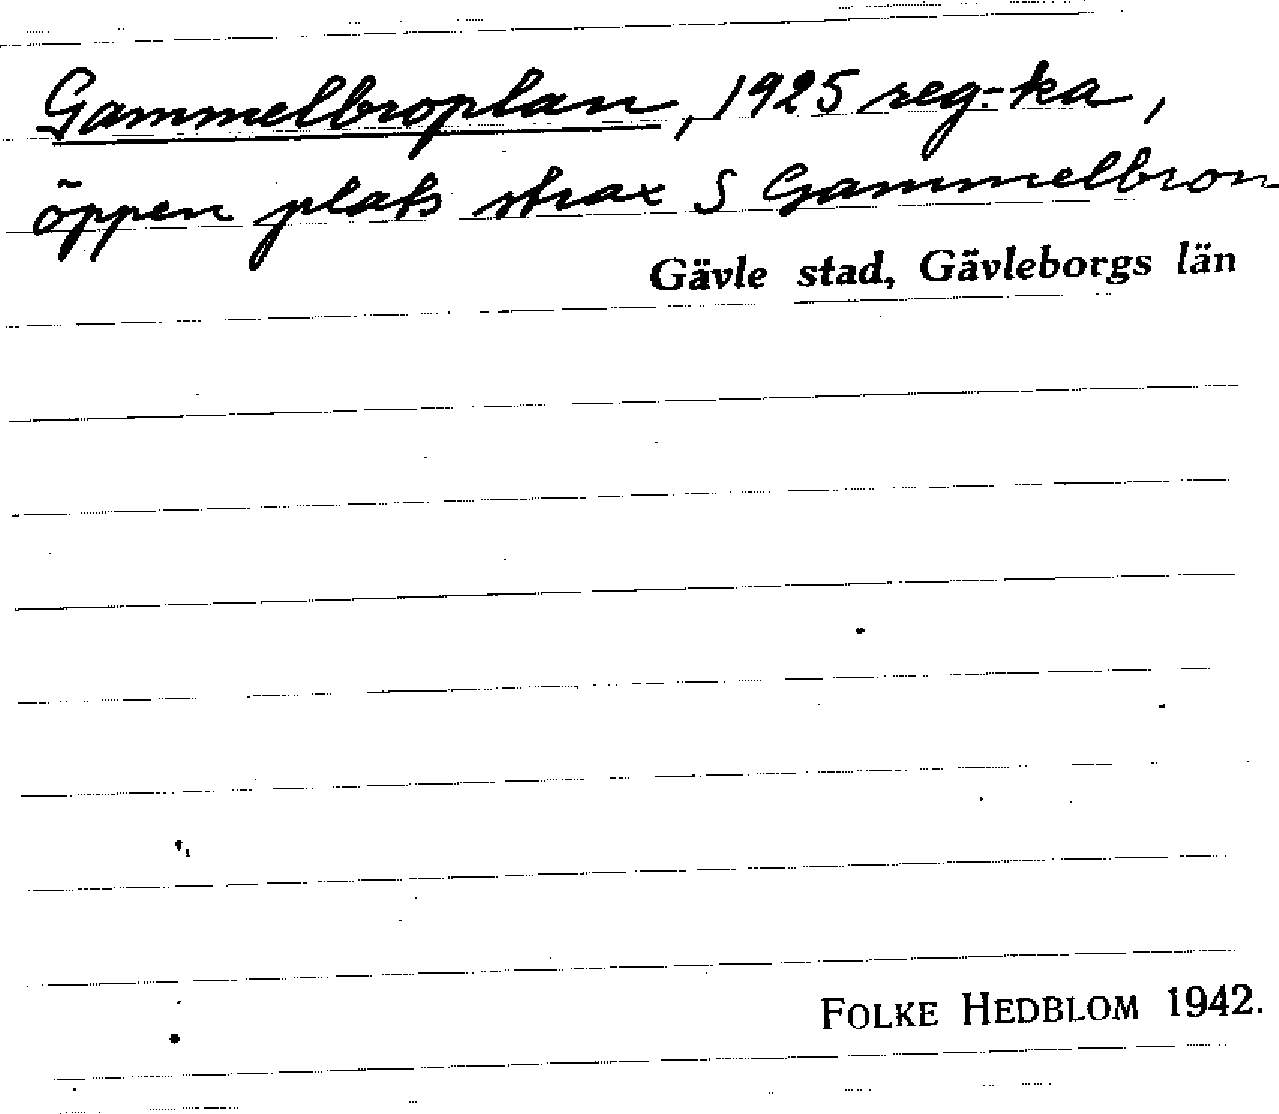 Gammelbroplan, 1925 reg.-ka,
öppen plats strax S Gammelbron
Gävle stad, Gävleborgs län
FOLKE HEDBLOM 1942.